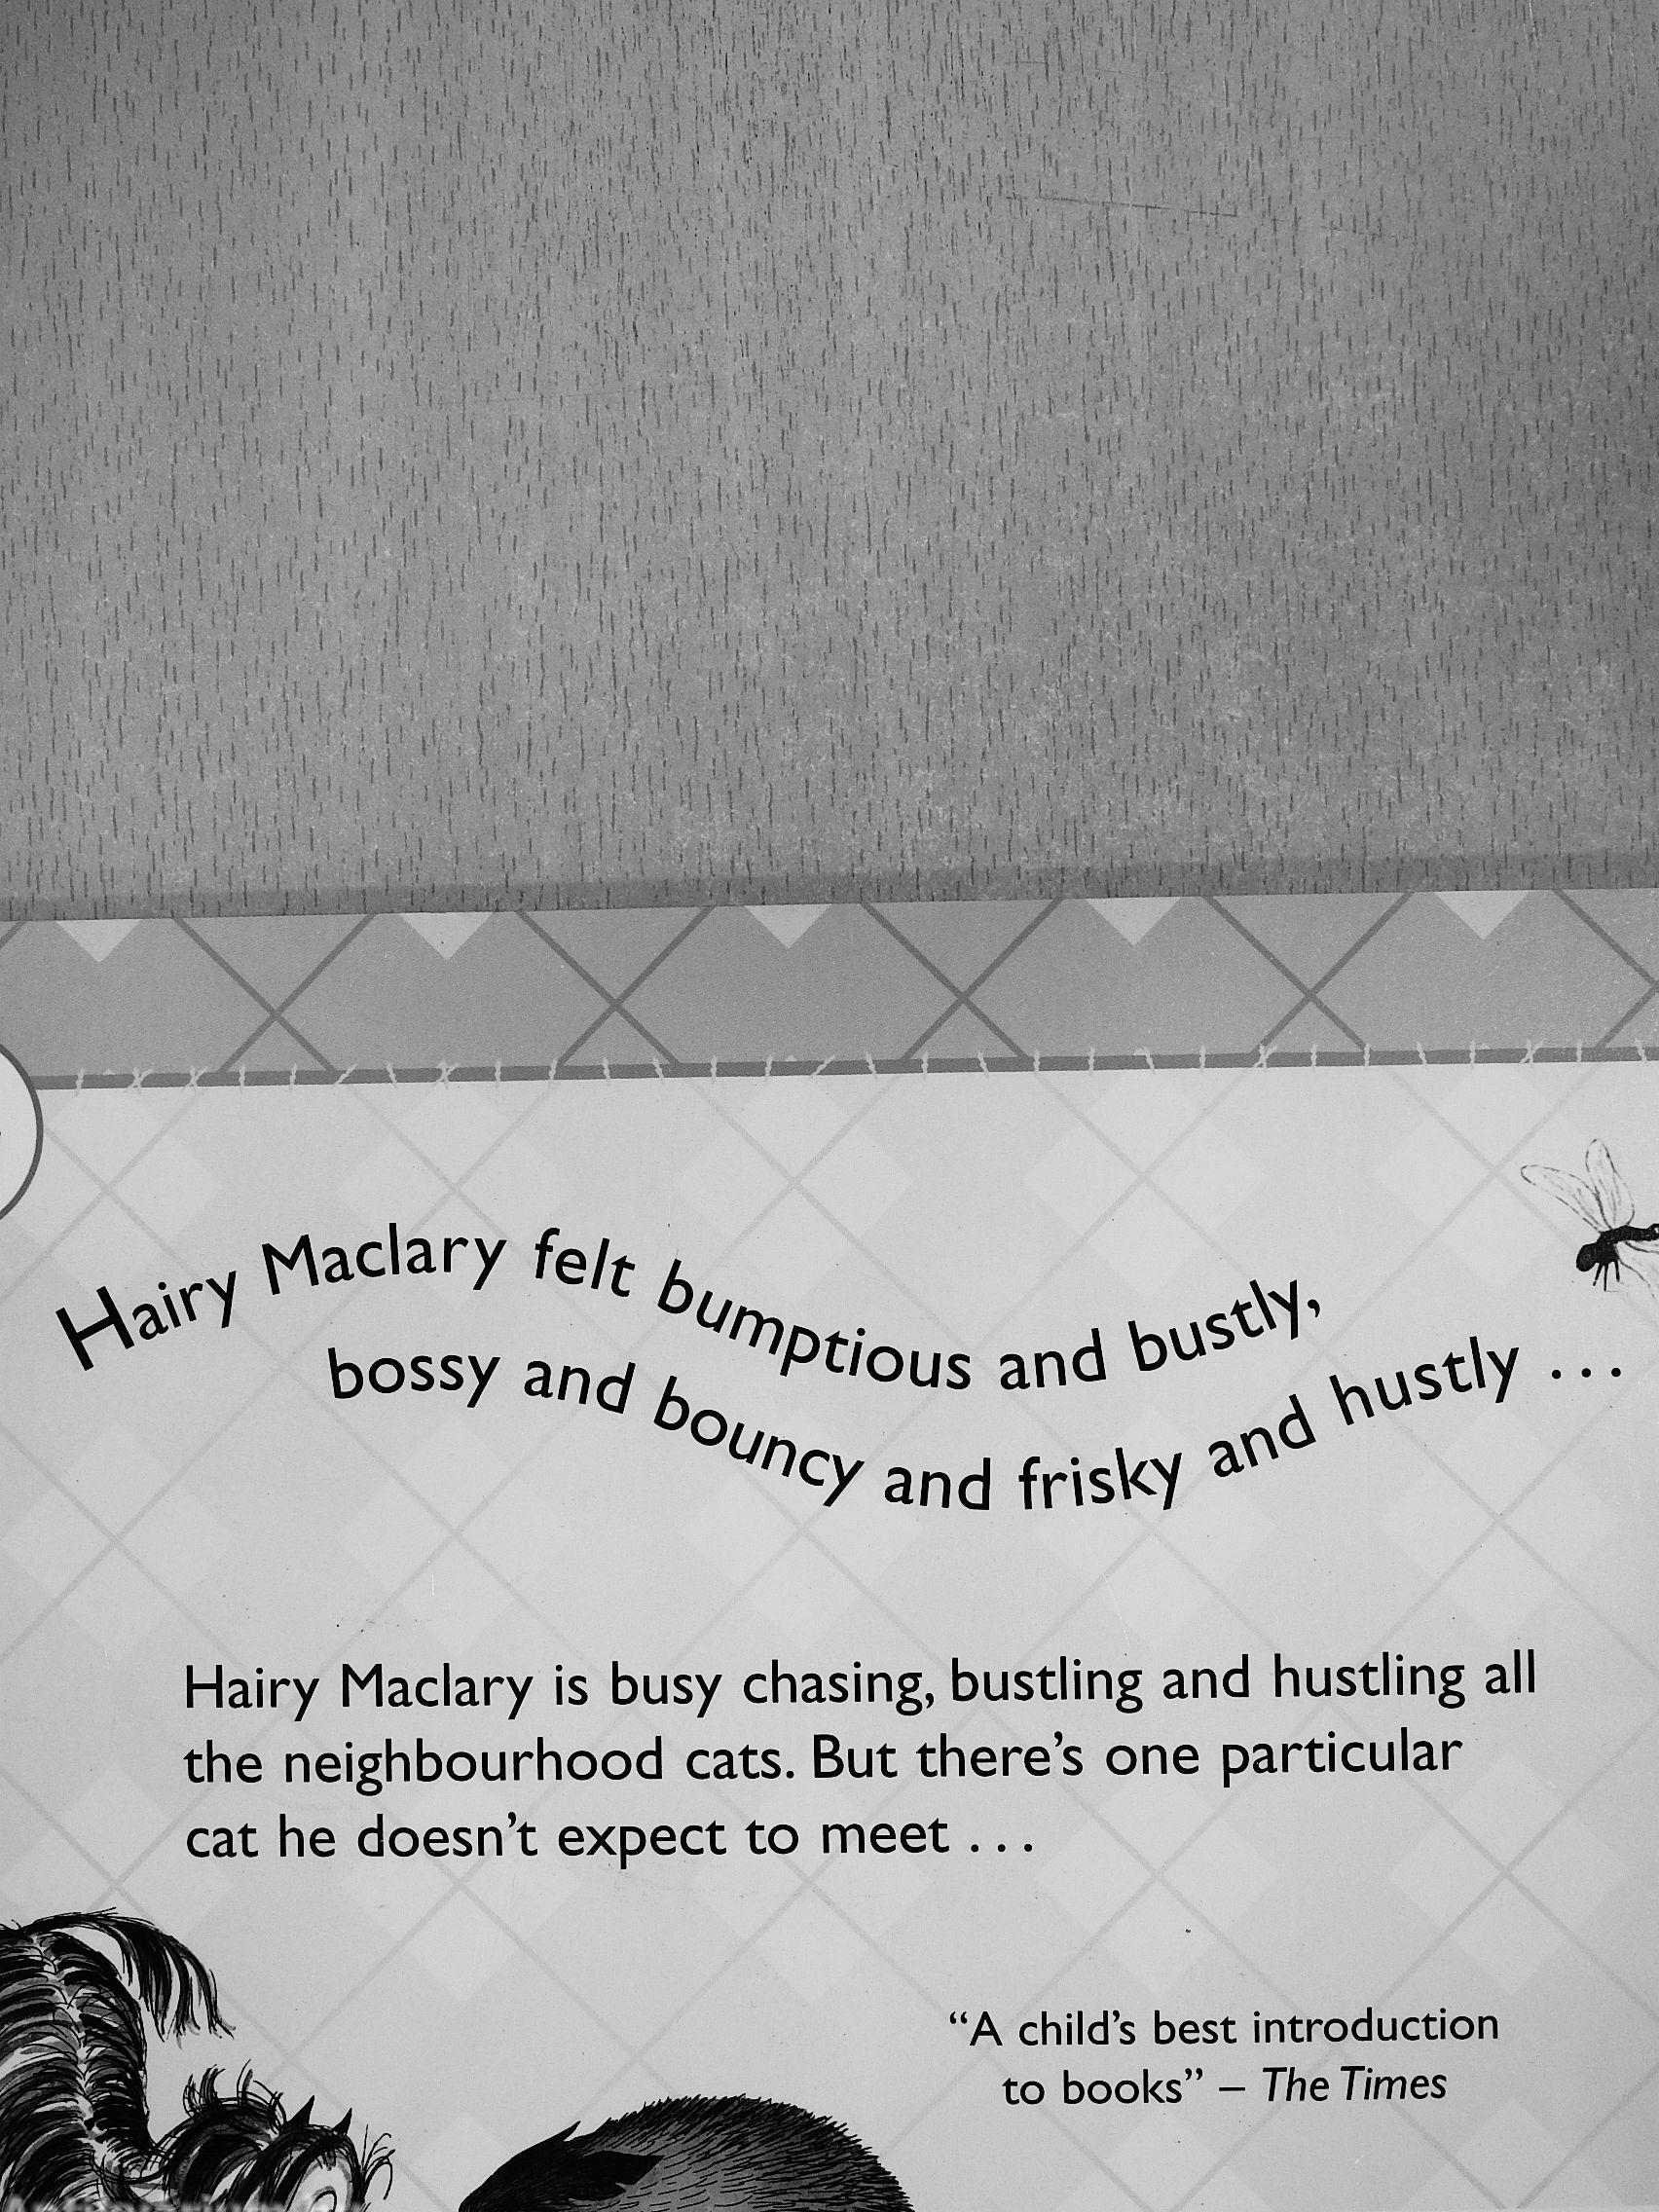 Hairy Maclary felt bumptious and bustly,
bossy and bouncy and frisky and hustly . . .
Hairy Maclary is busy chasing, bustling and hustling all
the neighbourhood cats. But there’s one particular
cat he doesn’t expect to meet . . .
“A child’s best introduction
to books” – The Times